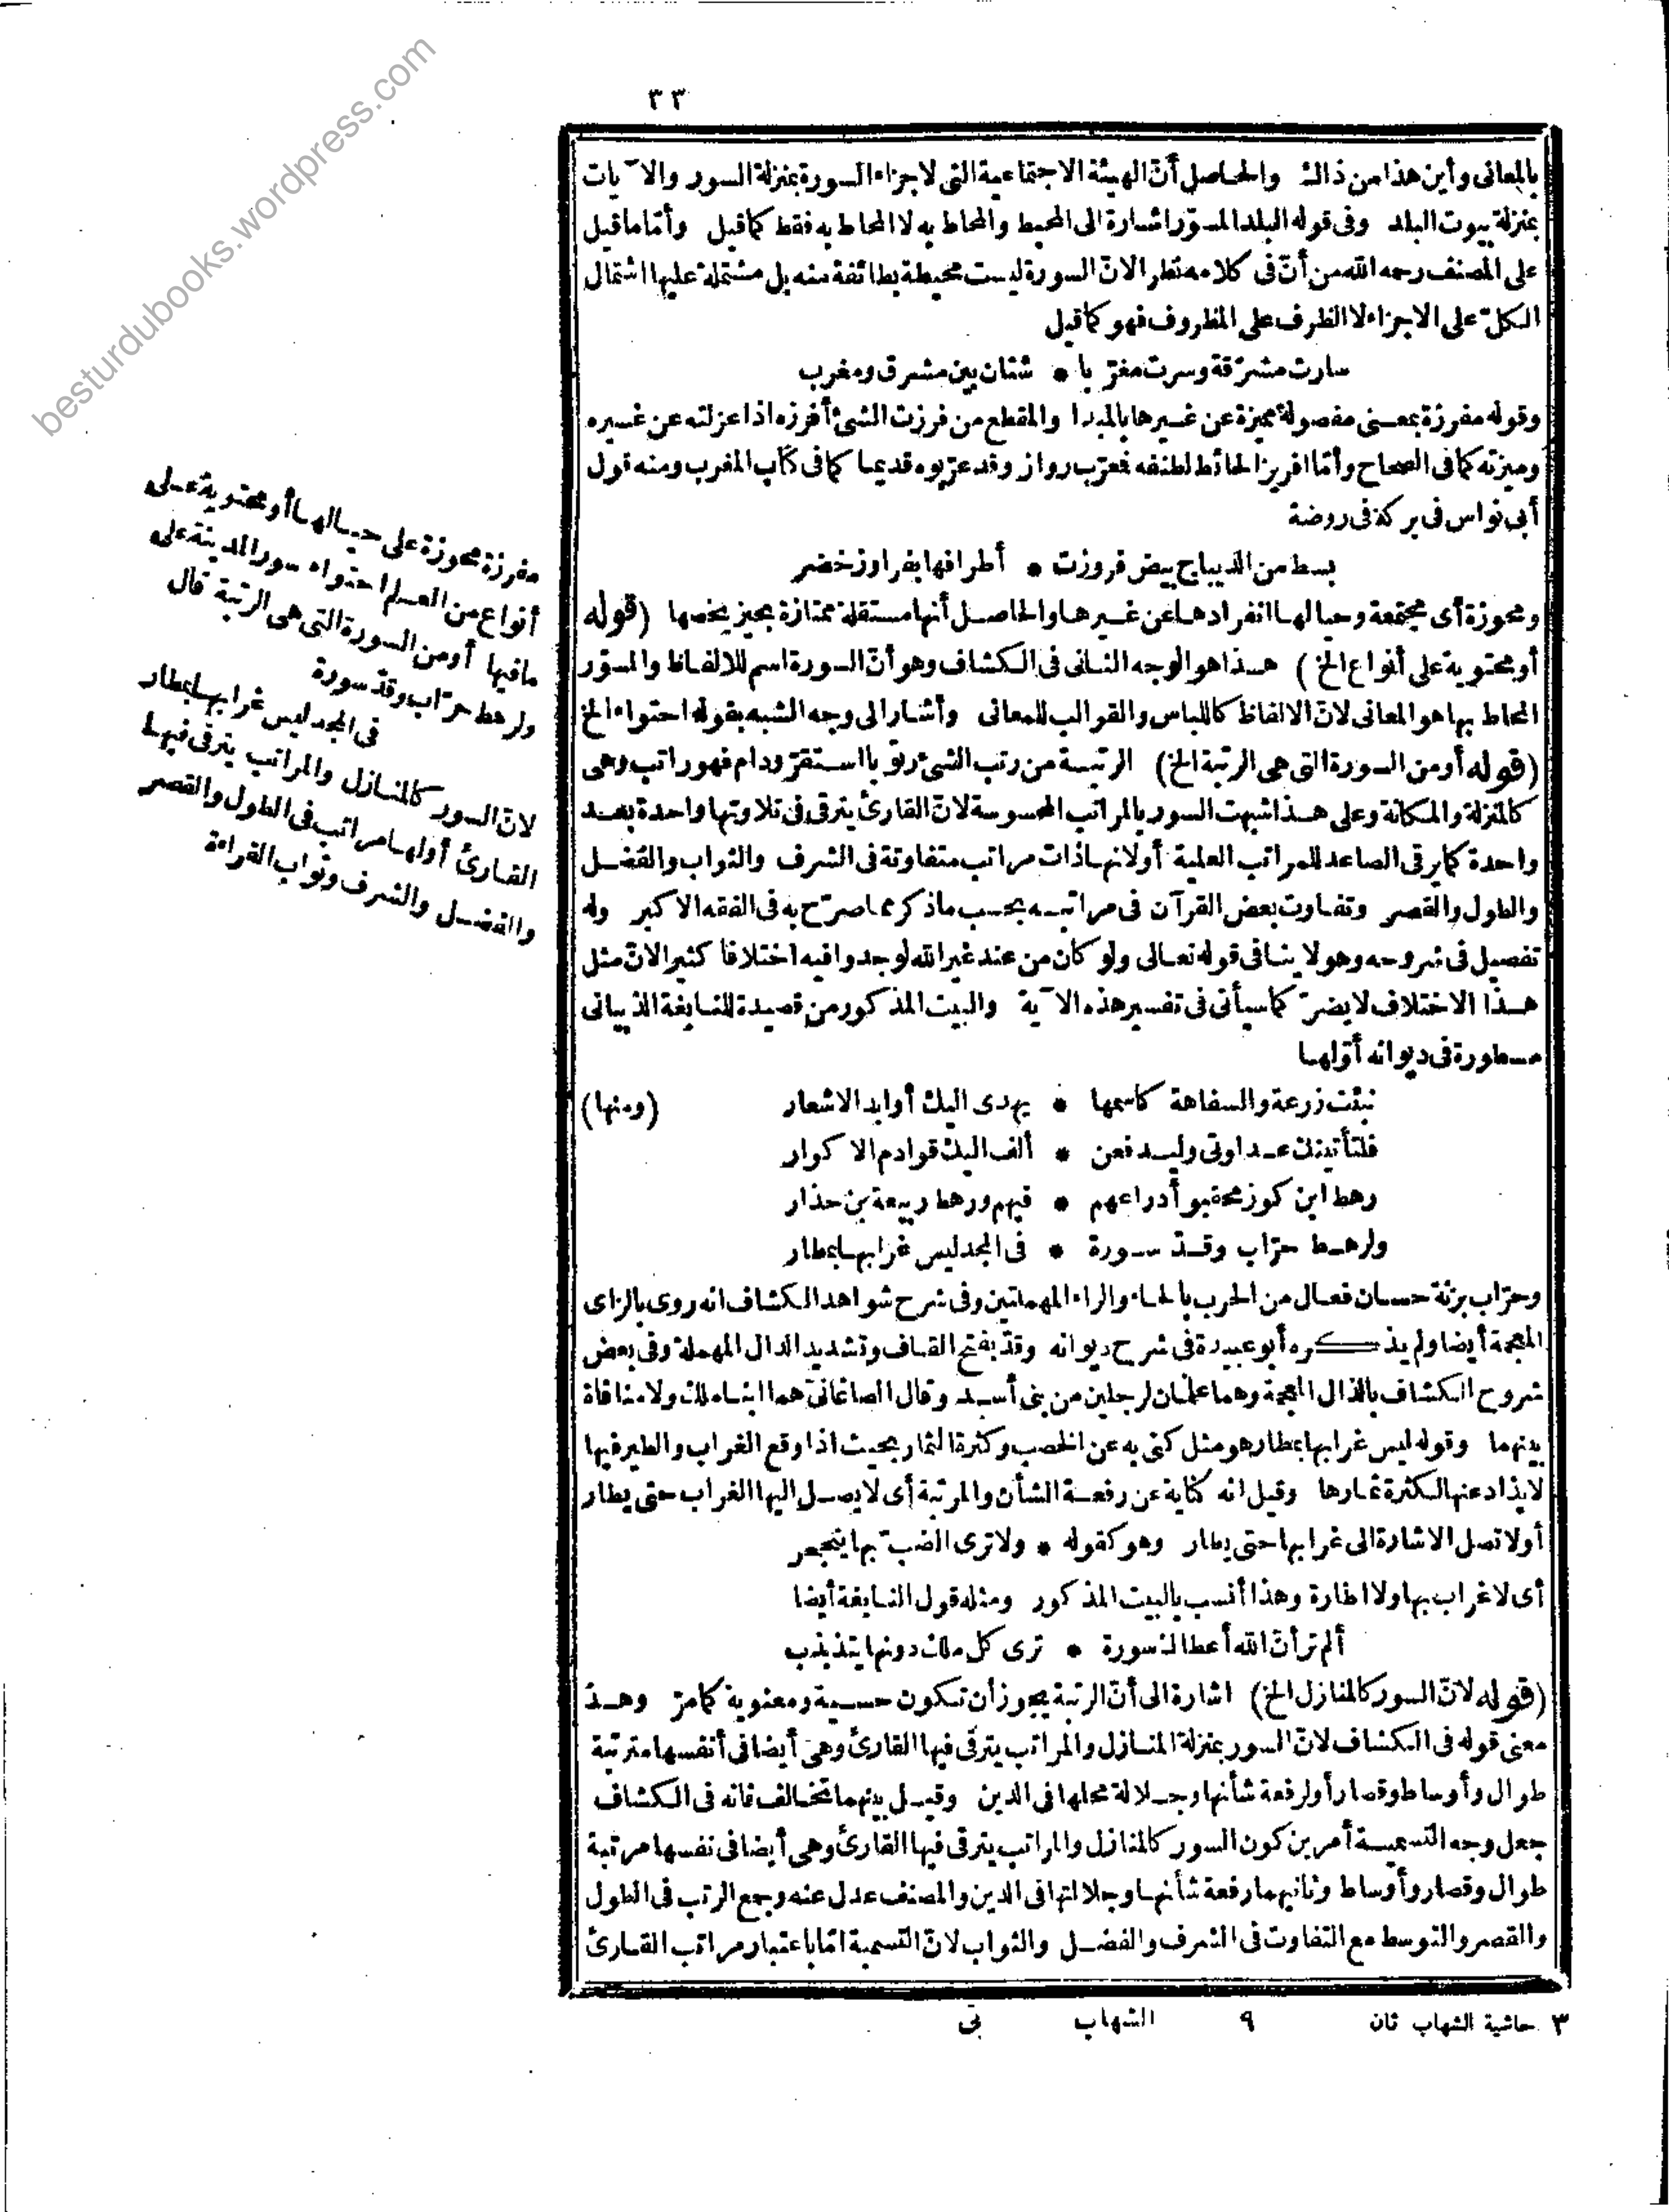 ٣٣
بالمعانى وأين هذا من ذاك والحاصل أنّ الهيئة الاجتماعية التى لاجزاء السورة بمنزلة السور والآيات
بمنزلة بيوت البلد وفى قوله البلد المسوّر اشارة الى المحيط والمحاط به لا المحاط به فقط كما قيل وأمّا ما قيل
على المصنف رحمه الله من أنّ فى كلامه نظر الانّ السورة ليست محيطة بطائفة منه بل مشتملة عليها اشتمال
الكلّ على الاجزاء لا الظرف على المظروف فهو كما قيل
سارت مشرّقة وسرت مغرّبا * شتان بين مشرق ومغرب
وقوله مفرزة بمعنى مفصولة مميزة عن غيرها بالمبدا والمقطع من فرزت الشئ أفرزه اذا عزلته عن غيره
وميزته كما فى الصحاح وأمّا افريز الحائط لطنفه فمعرّب رواز وقد عرّبوه قديما كما فى كتاب المغرب ومنه قول
أبى نواس فى بركة فى روضة
بسط من الديباج بيض فروزت * أطرافها بفراوز خضر
ومحوزة أى مجتمعة وحيالها انفرادها عن غيرها والحاصل أنها مستقلة ممتازة بحيز يخصها (قوله
أو محتوية على أنواع الخ) هذا هو الوجه الثانى فى الكشاف وهو أنّ السورة اسم للالفاظ والمسوّر
المحاط بها هو المعانى لانّ الالفاظ كاللباس والقوالب للمعانى وأشار الى وجه الشبه بقوله احتواء الخ
(قوله أو من السورة التى هى الرتبة الخ) الرتبة من رتب الشئ رتوبا استقرّ ودام فهو راتب وهى
كالمنزلة والمكانة وعلى هذا شبهت السور بالمراتب المحسوسة لانّ القارئ يترقى فى تلاوتها واحدة بعد
واحدة كما يرقى الصاعد للمراتب العلية أولانها ذات مراتب متفاوتة فى الشرف والثواب والفضل
والطول والقصر وتفاوت بعض القرآن فى مراتبه بحسب ما ذكر مما صرّح به فى الفقه الاكبر وله
تفصيل فى شروحه وهو لا ينافى قوله تعالى ولو كان من عند غير الله لوجدوا فيه اختلافا كثيرا لانّ مثل
هذا الاختلاف لا يضرّ كما سيأتى فى تفسير هذه الآية والبيت المذكور من قصيدة للنابغة الذبيانى
مسطورة فى ديوانه أوّلها
نبئت زرعة والسفاهة كاسمها * يهدى اليك أوابد الاشعار (ومنها)
فلتأتينك عداوتى وليدفعن * ألف اليك قوادم الاكوار
رهط ابن كوز محقبو أدراعهم * فيهم ورهط ربيعة بن حذار
ولرهط حرّاب وقدّ سورة * فى المجد ليس غرابها بمطار
وحرّاب بزنة حسان فعال من الحرب بالحاء والراء المهملتين وفى شرح شواهد الكشاف انه روى بالزاى
المعجمة أيضا ولم يذكره أبو عبيدة فى شرح ديوانه وقدّ بفتح القاف وتشديد الدال المهملة وفى بعض
شروح الكشاف بالذال المعجمة وهما علمان لرجلين من بنى أسد وقال الصاغانىّ هما ابنا مالك ولا منافاة
بينهما وقوله ليس غرابها بمطار هو مثل كنى به عن الخصب وكثرة الثمار بحيث اذا وقع الغراب والطير فيها
لا يذاد عنها لكثرة ثمارها وقيل انه كناية عن رفعة الشأن والمرتبة أى لا يصل اليها الغراب حتى يطار
أولا تصل الاشارة الى غرابها حتى يطار وهو كقوله * ولا ترى الضبّ بها ينجحر
أى لا غراب بها ولا اطارة وهذا أنسب بالبيت المذكور ومثله قول النابغة أيضا
ألم تر أنّ الله أعطاك سورة * ترى كل ملك دونها يتذبذب
(قوله لانّ السور كالمنازل الخ) اشارة الى أنّ الرتبة يجوز أن تكون حسية ومعنوية كما مرّ وهذ
معنى قوله فى الكشاف لانّ السور بمنزلة المنازل والمراتب يترقى فيها القارئ وهى أيضا فى أنفسها مترتبة
طوال وأوساط وقصار أولرفعة شأنها وجلالة محلها فى الدين وقيل بينهما تخالف فانه فى الكشاف
جعل وجه التسمية أمرين كون السور كالمنازل والمراتب يترقى فيها القارئ وهى أيضا فى نفسها مرتبة
طوال وقصار وأوساط وثانيهما رفعة شأنها وجلالتها فى الدين والمصنف عدل عنه وجمع الرتب فى الطول
والقصر والتوسط مع التفاوت فى الشرف والفضل والثواب لانّ التسمية امّا باعتبار مراتب القارئ
مفرزة محوزة على حيالها أو محتوية على
أنواع من العلم احتواء سور المدينة على
ما فيها أو من السورة التى هى الرتبة قال
ولرهط حرّاب وقدّ سورة
فى المجد ليس غرابها بمطار
لانّ السور كالمنازل والمراتب يترقى فيها
القارئ أولها مراتب فى الطول والقصر
والفضل والشرف وثواب القراءة
٣ حاشية الشهاب ثان ٩ الشهاب نى
besturdubooks.wordpress.com